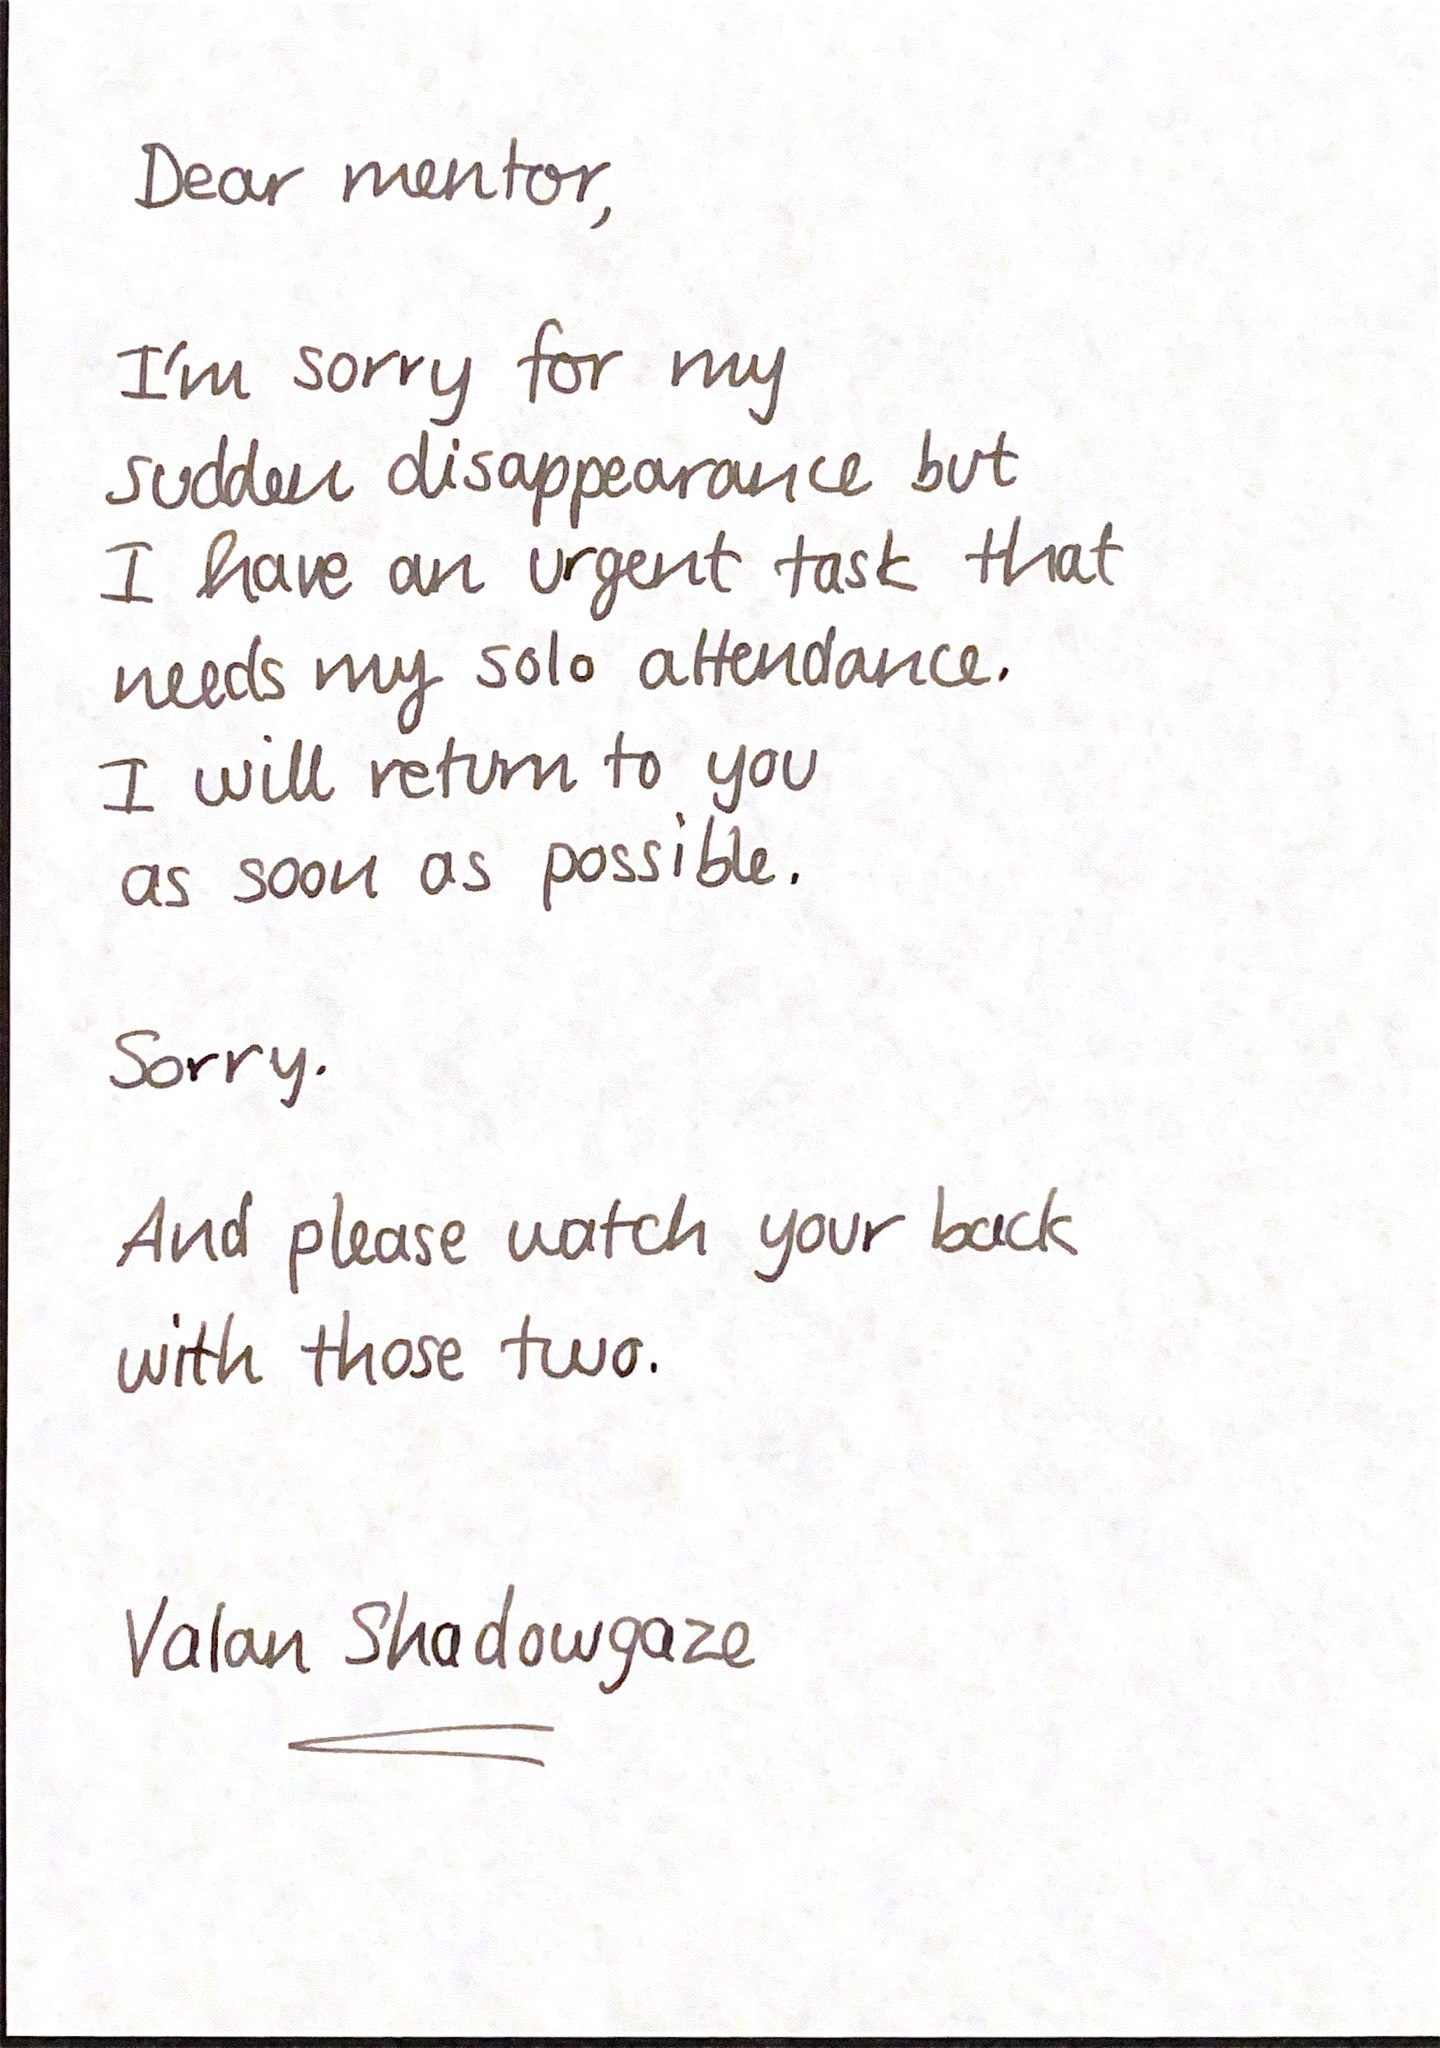 Dear mentor,
I'm sorry for my
sudden disappearance but
I have an urgent task that
needs my solo attendance.
I will return to you
as soon as possible.
Sorry.
And please watch your back
with those two.
Valan Shadowgaze